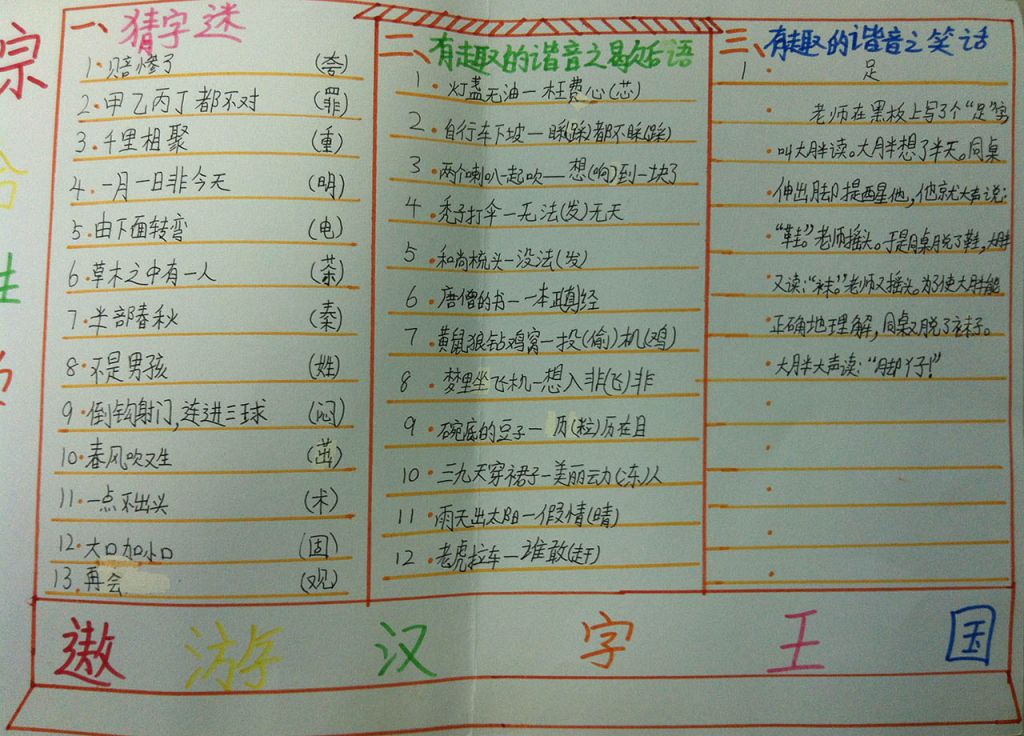 一、猜字迷
1.赔惨了 (夸)
2.甲乙丙丁都不对 (罪)
3.千里相聚 (重)
4.一月一日非今天 (明)
5.由下面转弯 (电)
6.草木之中有一人 (茶)
7.半部春秋 (秦)
8.不是男孩 (姓)
9.倒钩射门,连进三球 (闷)
10.春风吹又生 (茁)
11.一点不出头 (术)
12.大口加小口 (回)
13.再会 (观)
二、有趣的谐音之歇后语
1.灯盏无油—枉费心(芯)
2.自行车下坡—睬(踩)都不睬(踩)
3.两个喇叭一起吹——想(响)到一块了
4.秃子打伞—无法(发)无天
5.和尚梳头—没法(发)
6.唐僧的书—一本正真经
7.黄鼠狼钻鸡窝—投(偷)机(鸡)
8.梦里坐飞机—想入非(飞)非
9.碗底的豆子—历(粒)历在目
10.三九天穿裙子—美丽动(冻)人
11.雨天出太阳—假情(晴)
12.老虎拉车—谁敢(赶)
三、有趣的谐音之笑话
1. 足
老师在黑板上写了个“足”字
叫大胖读。大胖想了半天。同桌
伸出脚提醒他,他就大声说:
“鞋。”老师摇头。于是同桌脱了鞋,大胖
又读:“袜。”老师又摇头。为了使大胖能
正确地理解,同桌又脱了袜子。
大胖大声读:“脚丫子!”
遨游汉字王国